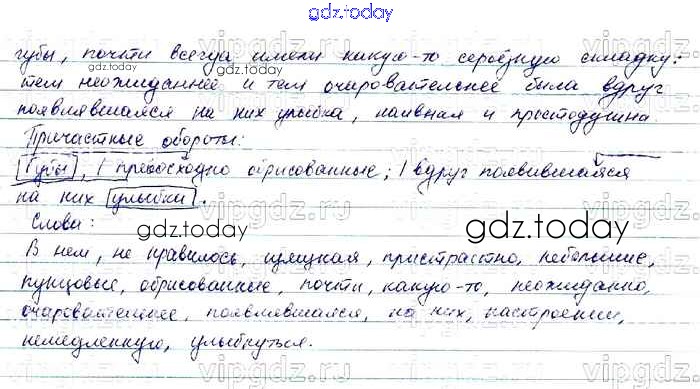 gdz.today
губы, почти всегда имели какую-то серьёзную складку:
тем неожиданнее и тем очаровательнее была вдруг
появлявшаяся на них улыбка, наивная и простодушна
Причастные обороты:
Губы, | превосходно обрисованные; | вдруг появившаяся
на них улыбка.
Слова:
gdz.today
gdz.today
В нем, не нравилось, изящная, пристрастно, небольшие,
пунцовые, обрисованные, почти, какую-то, неожиданно,
очаровательнее, появлявшаяся, на них, настроении,
немедленную, улыбнуться.
vipgdz.ru